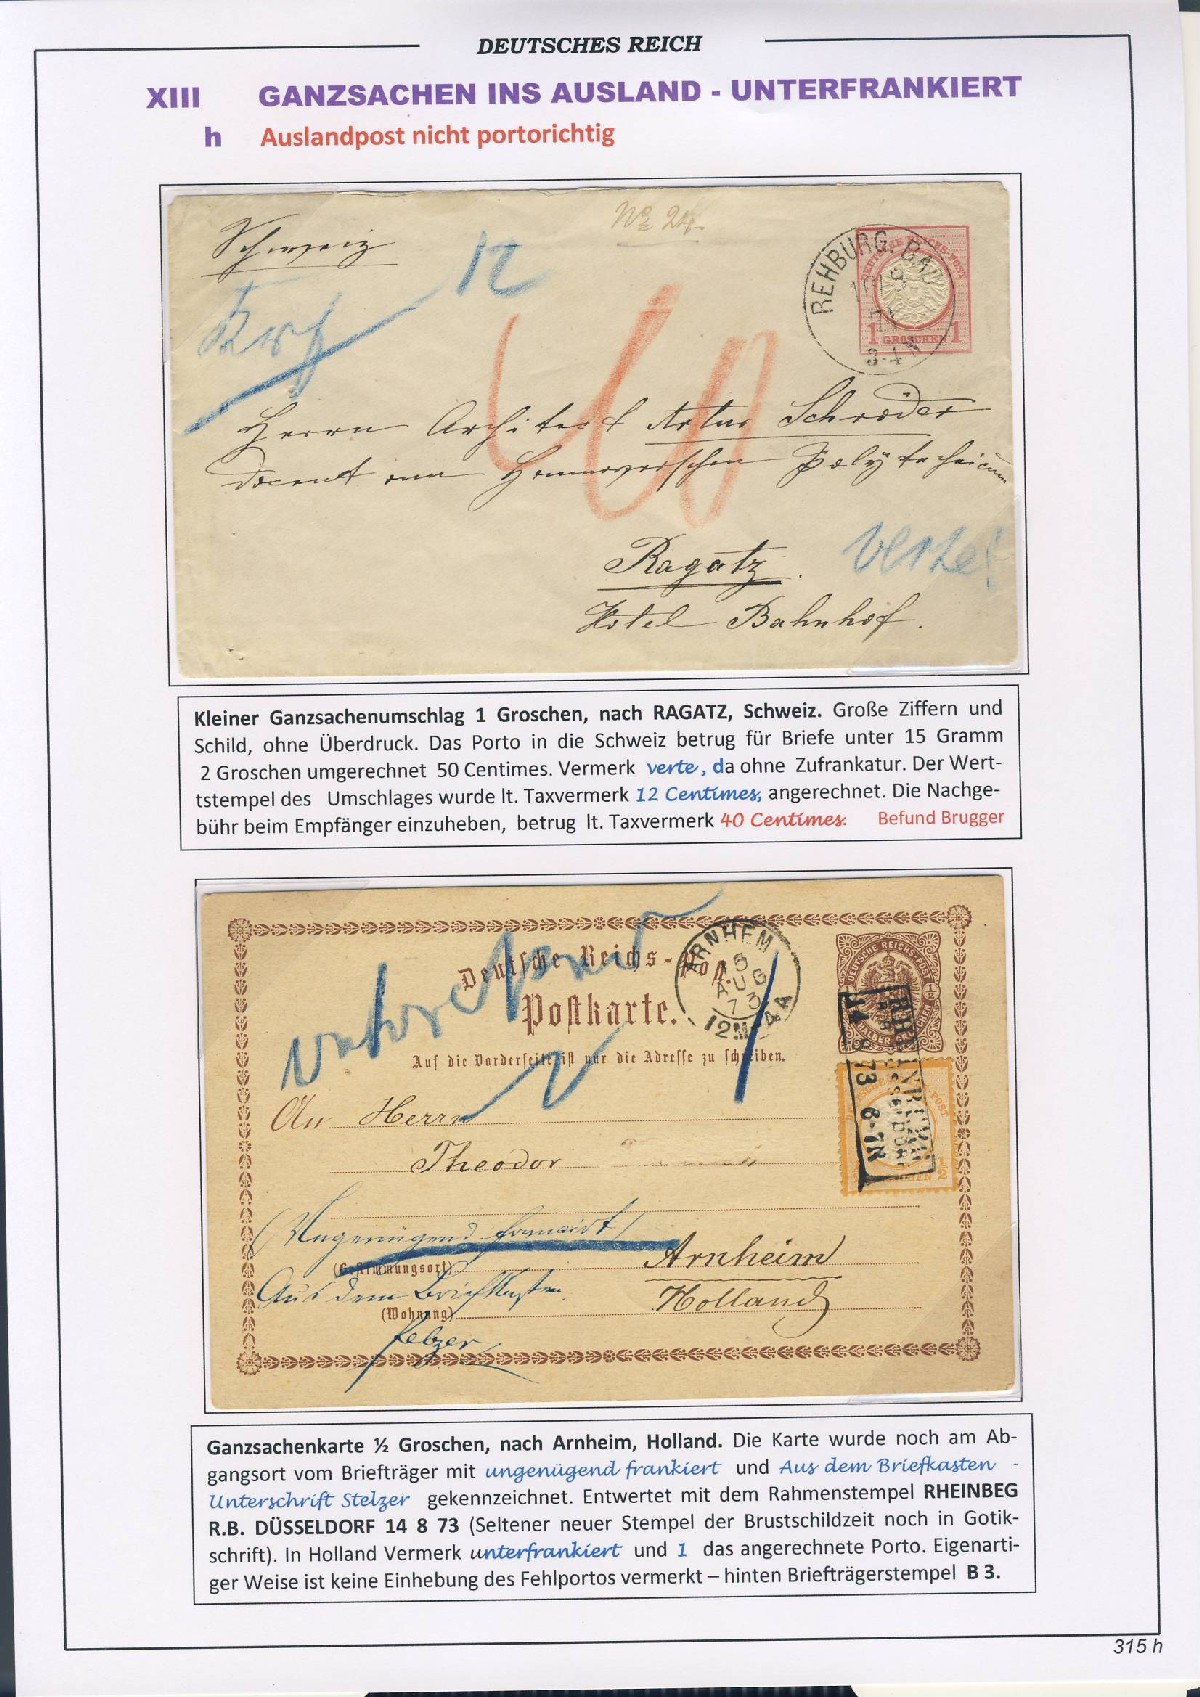 DEUTSCHES REICH
XIII GANZSACHEN INS AUSLAND - UNTERFRANKIERT
h Auslandpost nicht portorichtig
No 24.
Schweiz
12
REHBURG. BAD
DEUTSCHE REICHS-POST
1 GROSCHEN 1
40
Herrn Architect Artur Schröder
docent am Hannoverschen Polytechnicum
Ragatz.
verte!
Hotel Bahnhof.
Kleiner Ganzsachenumschlag 1 Groschen, nach RAGATZ, Schweiz. Große Ziffern und
Schild, ohne Überdruck. Das Porto in die Schweiz betrug für Briefe unter 15 Gramm
2 Groschen umgerechnet 50 Centimes. Vermerk verte, da ohne Zufrankatur. Der Wert-
tstempel des Umschlages wurde lt. Taxvermerk 12 Centimes, angerechnet. Die Nachge-
bühr beim Empfänger einzuheben, betrug lt. Taxvermerk 40 Centimes. Befund Brugger
ARNHEM
5
AUG
73
12M-4A
Deutsche Reichs-Post.
Postkarte.
Auf die Vorderseite ist nur die Adresse zu schreiben.
DEUTSCHE REICHS-POST
1
An Herrn
Theodor
14 8 73 6-7N
(Ungenügend frankirt)
(Bestimmungsort)
Arnheim
Aus dem Briefkasten.
Holland
(Wohnung)
Ganzsachenkarte ½ Groschen, nach Arnheim, Holland. Die Karte wurde noch am Ab-
gangsort vom Briefträger mit ungenügend frankiert und Aus dem Briefkasten -
Unterschrift Stelzer gekennzeichnet. Entwertet mit dem Rahmenstempel RHEINBEG
R.B. DÜSSELDORF 14 8 73 (Seltener neuer Stempel der Brustschildzeit noch in Gotik-
schrift). In Holland Vermerk unterfrankiert und 1 das angerechnete Porto. Eigenarti-
ger Weise ist keine Einhebung des Fehlportos vermerkt – hinten Briefträgerstempel B 3.
315 h